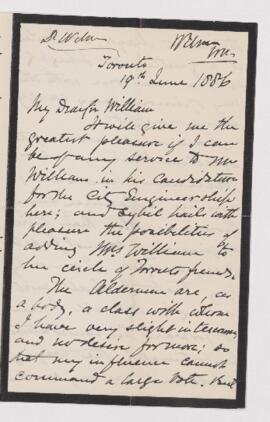 Dr Wilson
Wilson
Toronto
19th June 1886
My Dear Sir William
It will give me the
greatest pleasure if I can
be of any service to Mr
William in his candidature
for the City Engineership
here; and Sybil hails with
pleasure the possibilities of
adding Mrs William to
her circle of Toronto friends.
The Aldermen are, as
a body, a class with whom
I have very slight intercourse
and no desire for more; so
that my influence cannot
command a large vote. But